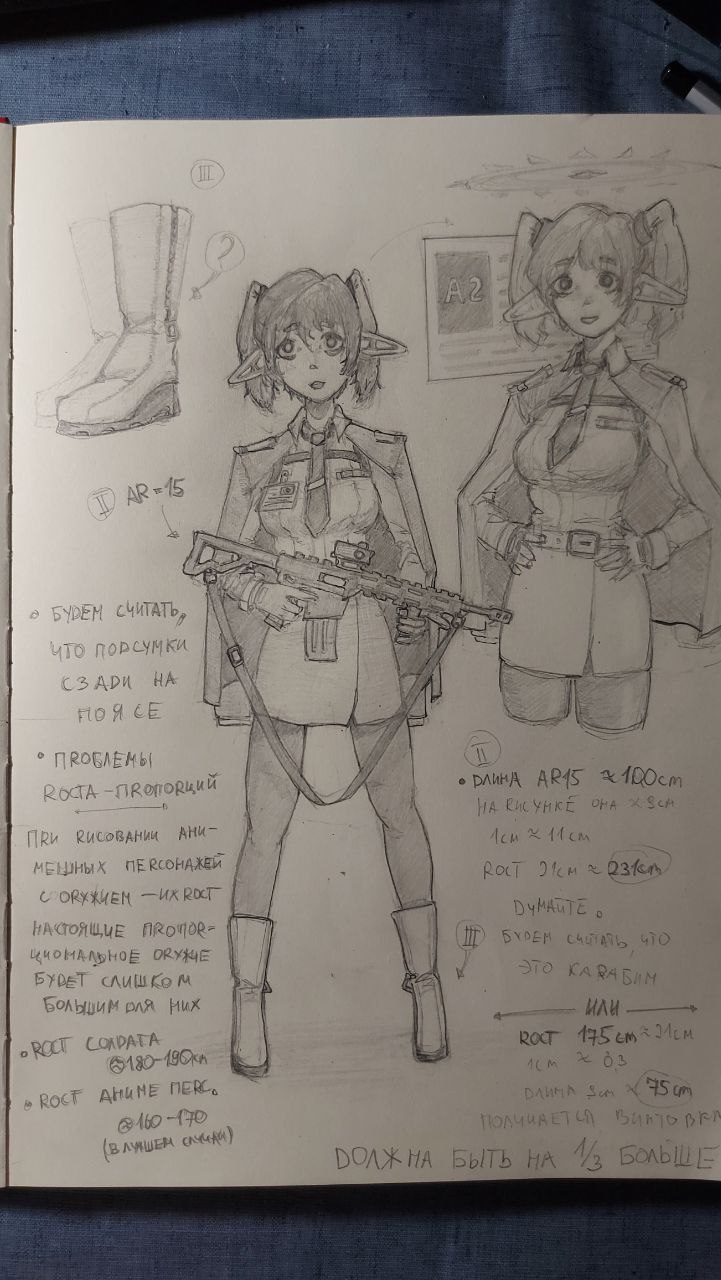 III
?
A2
II AR=15
• БУДЕМ СЧИТАТЬ,
ЧТО ПОДСУМКИ
СЗАДИ НА
ПОЯСЕ
• ПRОБЛЕМЫ
RОСТА-ПRОПОRЦИЙ
ПRИ RИСОВАНИИ АНИ-
МЕШНЫХ ПЕRСОНАЖЕЙ
С ОRУЖИЕМ — ИХ RОСТ
НАСТОЯЩИЕ ПRОПОR=
ЦИОНАЛЬНОЕ ОRУЖИЕ
БУДЕТ СЛИШКОМ
БОЛЬШИМ ДЛЯ НИХ
• RОСТ СОLDАТА
≈180-190см
• RОСТ АНИМЕ ПЕRС.
≈160-170
(В ЛУЧШЕМ СЛУЧАИ)
II
• ДЛИНА AR15 ≈ 100cm
НА RИСУНКЕ ОНА ≈ 9см
1см ≈ 11см
RОСТ 21см ≈ 231см
DУМАЙТЕ.
III БУDЕМ СЧИТАТЬ, ЧТО
ЭТО КАRАБИН
ИЛИ
RОСТ 175cm ≈ 21см
1см ≈ 8.3
DЛИНА 9см ≈ 75см
ПОЛУЧАЕТСЯ ВИНТОВКА
DОЛЖНА БЫТЬ НА 1/3 БОЛЬШЕ